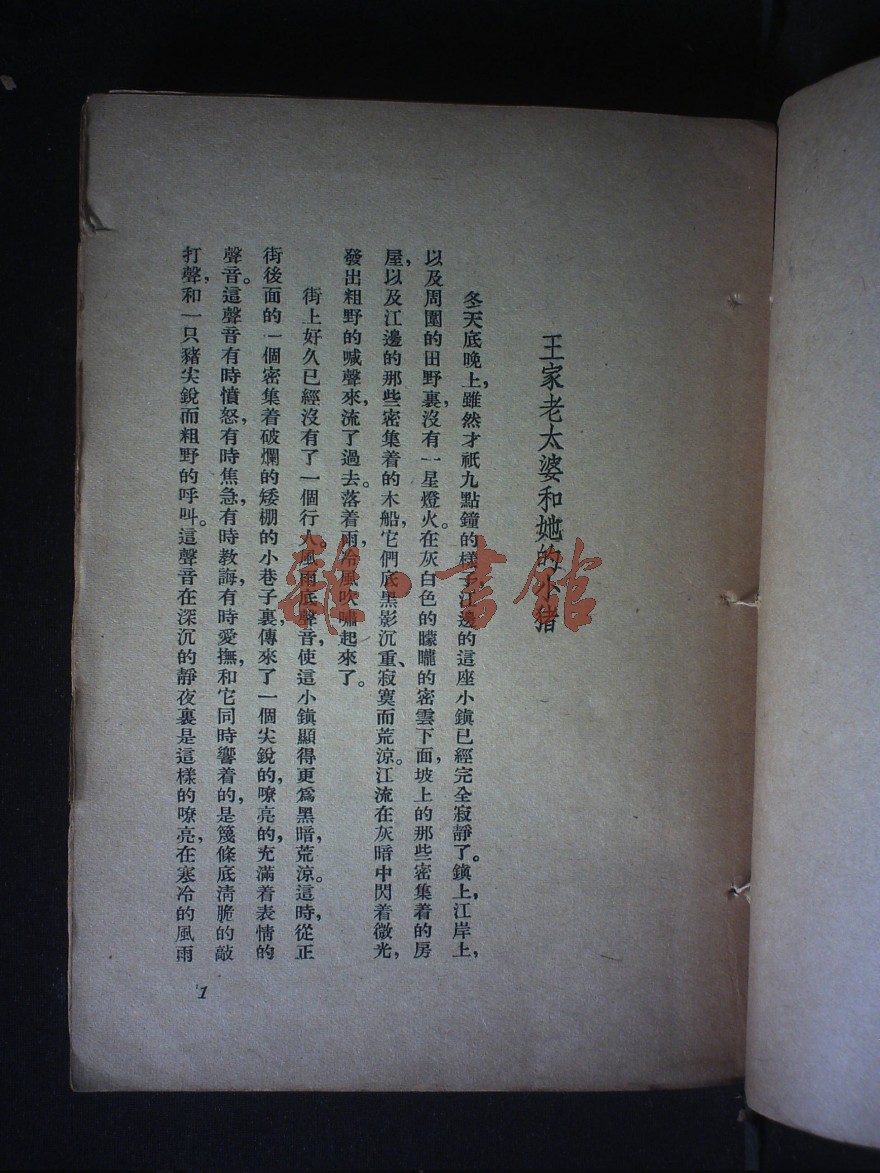 王家老太婆和她的小猪
冬天底晚上，雖然才祇九點鐘的樣子，江邊的這座小鎮已經完全寂靜了。鎮上，江岸上，
以及周圍的田野裏，沒有一星燈火。在灰白色的矇矓的密雲下面，坡上的那些密集着的房
屋，以及江邊的那些密集着的木船，它們底黑影沉重、寂寞而荒涼。江流在灰暗中閃着微光，
發出粗野的喊聲來，流了過去。落着雨，冷風吹嘯起來了。
街上好久已經沒有了一個行人。風雨底聲音，使這小鎮顯得更爲黑暗，荒涼。這時，從正
街後面的一個密集着破爛的矮棚的小巷子裏傳來了一個尖銳的，嘹亮的，充滿着表情的
聲音。這聲音有時憤怒，有時焦急，有時教誨，有時愛撫，和它同時響着的，是篾條底淸脆的敲
打聲，和一只豬尖銳而粗野的呼叫。這聲音在深沉的靜夜裏是這樣的嘹亮，在寒冷的風雨
1
雜·書館